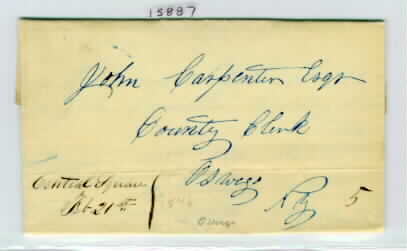 15887
John Carpenter Esqr
County Clerk
Oswego
N Y 5
Central Square
Feb 21st